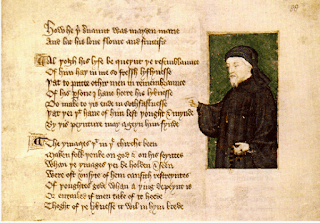 88
How he þi seruaunt was mayden marie
And lat his loue floure and fructifie
Al þogh his lyfe be queynt þe resemblaunce
Of him haþ in me so fressh lyflynesse
Þat to putte othir men in remembraunce
Of his persone I haue heere his lyknesse
Do make to þis ende in sothfastnesse
Þat þei þt haue of him lest þought & mynde
By þis peynture may ageyn him fynde
The ymages þt in þe chirche been
Maken folk þenke on god & on his seyntes
Whan þe ymages þei beholden & seen
Were oft unsyte of hem causith restreyntes
Of þoughtes gode whan a þing depeynt is
Or entailed if men take of it heede
Thoght of þe lyknesse it wil in hym brede